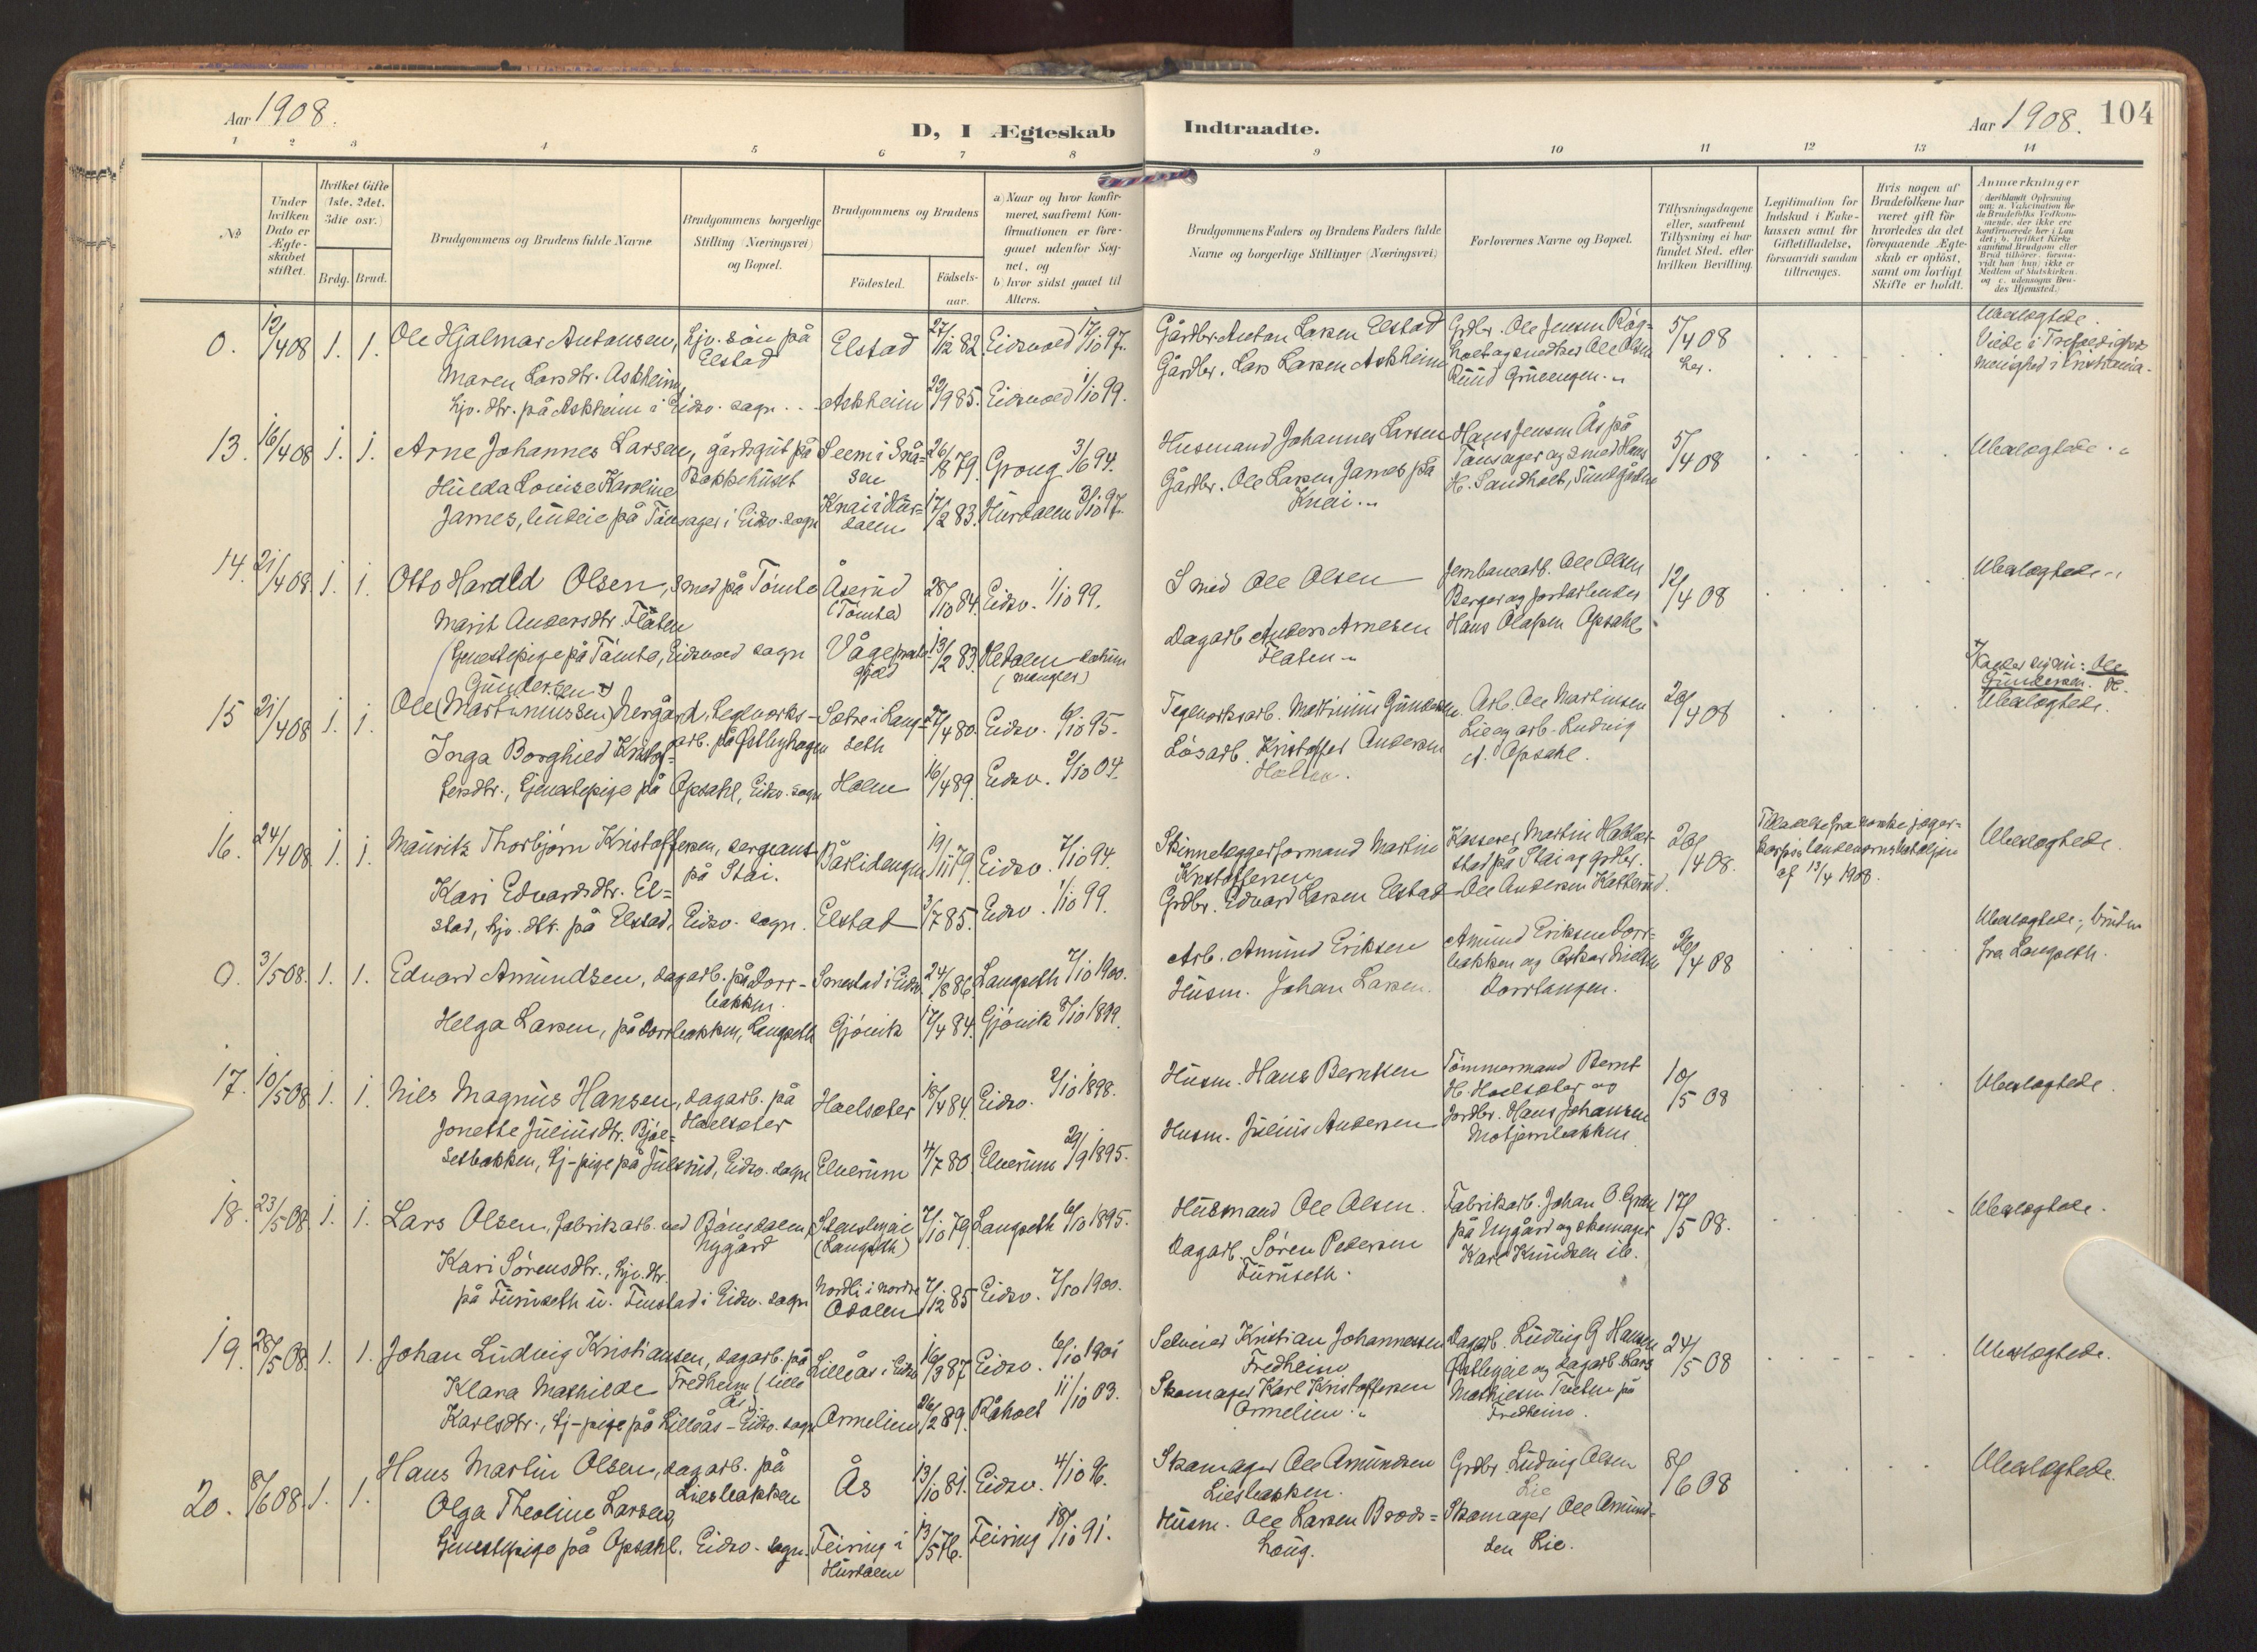 Aar 1908.
D, I Ægteskab Indtraadte.
Aar 1908. 104
1 2 3 4 5 6 7 8 9 10 11 12 13 14
No
Under hvilken Dato er Ægteskabet stiftet.
Hvilket Gifte (1ste, 2det, 3die osv.)
Brdg. Brud.
Brudgommens og Brudens fulde Navne
Brudgommens borgerlige Stilling (Næringsvei) og Bopæl.
Brudgommens og Brudens
Fødested.
Fødselsaar.
a) Naar og hvor konfirmeret, saafremt Konfirmationen er foregaaet udenfor Sognet, og
b) hvor sidst gaaet til Alters.
Brudgommens Faders og Brudens Faders fulde Navne og borgerlige Stillinger (Næringsvei)
Forlovernes Navne og Bopæl.
Tillysningsdagene eller, saafremt Tillysning ei har fundet Sted, efter hvilken Bevilling.
Legitimation for Indskud i Enkekassen samt for Giftetilladelse, forsaavidt saadan tiltrænges.
Hvis nogen af Brudefolkene har været gift før, hvorledes da det foregaaende Ægteskab er opløst, samt om lovligt Skifte er holdt.
Anmærkninger
(deriblandt Oplysning om: a. Vakcination for de Brudefolks Vedkommende, der ikke ere konfirmerede her i Landet; b. hvilket Kirkesamfund Brudgom eller Brud tilhører, forsaavidt han (hun) ikke er Medlem af Statskirken; og c. udensogns Brudes Hjemsted.)
0. 12/4 08 1. 1. Ole Hjalmar Antonsen, hjv. søn på Elstad Elstad 27/12 82 Eidsvold 17/10 97.
Gårdbr. Anton Larsen Elstad Grdbr. Ole Jensen 5/4 08 Ubeslægtede.
Maren Larsdtr. Askheim
hjv. dtr. på Askheim i Eidsv. sogn Askheim 22/9 85. Eidsvold 1/10 99.
Gårdbr. Lars Larsen Askheim Ole Olsen Ruud
Viede i Trefoldigheds Menighed i Kristiania.
13. 16/4 08 1. 1. Arne Johannes Larsen, gårdsgut på Bakkehuset Seem i Snåsen 26/8 79. Grong 3/6 94.
Husmand Johannes Larsen Hans Jensen Ås på Tønsager og smed Hans H. Sandholt, Sundgården 5/4 08 Ubeslægtede.
Hulda Lovise Karoline
James, budeie på Tønsager i Eidsv. sogn Knai i Hurdalen 17/2 83. Hurdalen 3/10 97.
Gårdbr. Ole Larsen James på Knai.
14. 21/4 08 1. 1. Otto Harald Olsen, smed på Tømte Åserud (Tømte) 28/10 84. Eidsv. 1/10 99.
Smed Ole Olsen Jernbanearb. Ole Olsen Berger og forarbeider Hans Olafsen Opsahl 12/4 08 Ubeslægtede.
Marit Andersdtr. Flaten
(tjenestepige på Tømte, Eidsvold sogn Våge 13/2 83. Hedalen (mangler)
Dagarb. Anders Arnesen Flaten
Gundersen
15 21/4 08 1. 1. Ole (Martiniussen) Nergård, teglverksarb. på Østbyhagen Sætre i Langseth 27/4 80. Eidsv. 6/10 95.
Teglverksarb. Martinius Gundersen. Arb. Ole Martinsen Lie og arb. Ludvig A. Opsahl. 20/4 08
Kaldes: Ole Gundersen.
Ubeslægtede.
Inga Borghild Kristof-
fersdtr., tjenestepige på Opsahl, Eidsv. sogn Holm 16/4 89. Eidsv. 2/10 04.
Løsarb. Kristoffer Andersen Holm.
16. 24/4 08 1. 1. Mauritz Thorbjørn Kristoffersen, sergeant på Stai. 19/11 79. Eidsv. 7/10 94.
Skinnelæggerformand Martin Kristoffersen Kasserer Martin Habberstad på Stai og grdbr. Ole Andersen Katterud. 20/4 08. Tilladelse fra norske jægerkorps's landeværnsbataljon af 13/4 1908. Ubeslægtede.
Kari Edvardsdtr. El-
stad, hjv. dtr. på Elstad, Eidsv. sogn. Elstad 3/7 85. Eidsv. 1/10 99.
Grdbr. Edvard Larsen Elstad
0. 3/5 08. 1. 1. Edvard Amundsen, dagarb. på Dorrbakken. Smestad i Eidsv. 24/8 86 Langseth 7/10 1900.
Arb. Amund Eriksen Amund Eriksen Dorrbakken og Oskar Dorrtangen. 26/4 08 Ubeslægtede; bruden fra Langseth.
Helga Larsen, på Dorrbakken, Langseth Gjøvik 17/4 84. Gjøvik 8/10 1899.
Husm. Johan Larsen.
17. 10/5 08 1. 1. Nils Magnus Hansen, dagarb. på Hoelsæter Hoelsæter 18/4 84. Eidsv. 2/10 1898.
Husm. Hans Berntsen Tømmermand Bernt H. Hoelsæter og jordbr. Hans Johansen Motjernbakken 10/5 08 Ubeslægtede.
Jonette Juliusdtr. Bjøl-
setbakken, tj-pige på Julsrud, Eidsv. sogn Elverum 4/7 80 Elverum 29/9 1895.
Husm. Julius Andersen
18. 23/5 08. 1. 1. Lars Olsen, fabrikarb. ved Bønsdalen, Nygård Stensbyeie (Langseth) 7/10 79. Langseth 6/10 1895.
Husmand Ole Olsen. Fabrikarb. Johan O. på Nygård og skomager Karl Knudsen ib. 17/5 08. Ubeslægtede.
Kari Sørensdtr., hjv. dtr.
på Furuseth u. Finstad i Eidsv. sogn Nordli i nordre Odalen 7/12 85 Eidsv. 7/10 1900.
Dagarb. Søren Pedersen Furuseth.
19. 28/5 08 1. 1. Johan Ludvig Kristiansen, dagarb. på Fredheim (Lilleås) Lilleås i Eidsv. 16/3 87 Eidsv. 6/10 1901
Selveier Kristian Johannessen Fredheim Dagarb. Ludvig G Hansen Østbyeie og dagarb. Lars Mathiesen på Fredheim. 24/5 08 Ubeslægtede.
Klara Mathilde
Karlsdtr., tj-pige på Lilleås - Eidsv. sogn Ormelien 26/2 89. Råholt 11/10 03.
Skomager Karl Kristoffersen Ormelien.
20. 8/6 08. 1. 1. Hans Martin Olsen, dagarb. på Liesbakken Ås 13/10 81. Eidsv. 4/10 96.
Skomager Ole Amundsen Liesbakken. Grdbr. Ludvig Olsen Lie 8/6 08 Ubeslægtede.
Olga Theoline Larsen,
tjenestepige på Opsahl. Eidsv. sogn. Feiring i Hurdalen 13/5 76. Feiring 18/10 91.
Husm. Ole Larsen Skomager Ole Amundsen Lie.